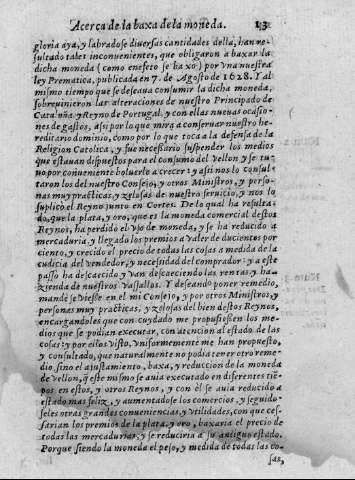 Acerca de la baxa de la moneda. 13
gloria aya, y labradose diuersas cantidades della, han re-
sultado tales inconuenientes, que obligaron à baxar la
dicha moneda (como en efeto se baxò) por vna nuestra
ley Prematica, publicada en 7. de Agosto de 1628. Y al
mismo tiempo que se deseaua consumir la dicha moneda,
sobreuinieron las alteraciones de nuestro Principado de
Cataluña, y Reyno de Portugal, y con ellas nueuas ocasio-
nes de gastos, asi por lo que mira a conseruar nuestro he-
reditario dominio, como por lo que toca a la defensa de la
Religion Catolica, y fue necesario suspender los medios
que estauan dispuestos para el consumo del Vellon y se tu-
uo por conueniente boluerle a crecer: y asi nos lo consul-
taron los del nuestro Consejo, y otros Ministros, y perso-
nas muy practicas, y zelosas de nuestro seruicio, y nos lo
suplicò el Reyno junto en Cortes. De lo qual ha resulta-
do, que la plata, y oro, que es la moneda comercial destos
Reynos, ha perdido el vso de moneda, y se ha reducido a
mercaduria, y llegado los premios a valer de ducientos por
ciento, y crecido el precio de todas las cosas a medida de la
cudicia del vendedor, y necesidad del comprador: y a este
passo ha descaecido y van descaeciendo las rentas, y ha-
zienda de nuestros Vassallos. Y deseando poner remedio,
mandè se viesse en el mi Consejo, y por otros Ministros, y
personas muy practicas, y zelosas del bien destos Reynos,
encargandoles que con cuydado me propusiessen los me-
dios que se podian executar, con atencion al estado de las
cosas: y por ellos visto, vniformemente me han propuesto,
y consultado, que naturalmente no podia tener otro reme-
dio, sino el ajustamiento, baxa, y reduccion de la moneda
de vellon, q̃ este mismo se auia executado en diferentes tiẽ-
pos en estos, y otros Reynos, y con èl se auia reducido a
estado mas feliz, y aumentadose los comercios, y seguido-
seles otras grandes conueniencias, y vtilidades, con que ces-
sarian los premios de la plata, y oro, baxaria el precio de
todas las mercadurias, y se reduciria a su antiguo estado.
Porque siendo la moneda el peso, y medida de todas las co-
sas,